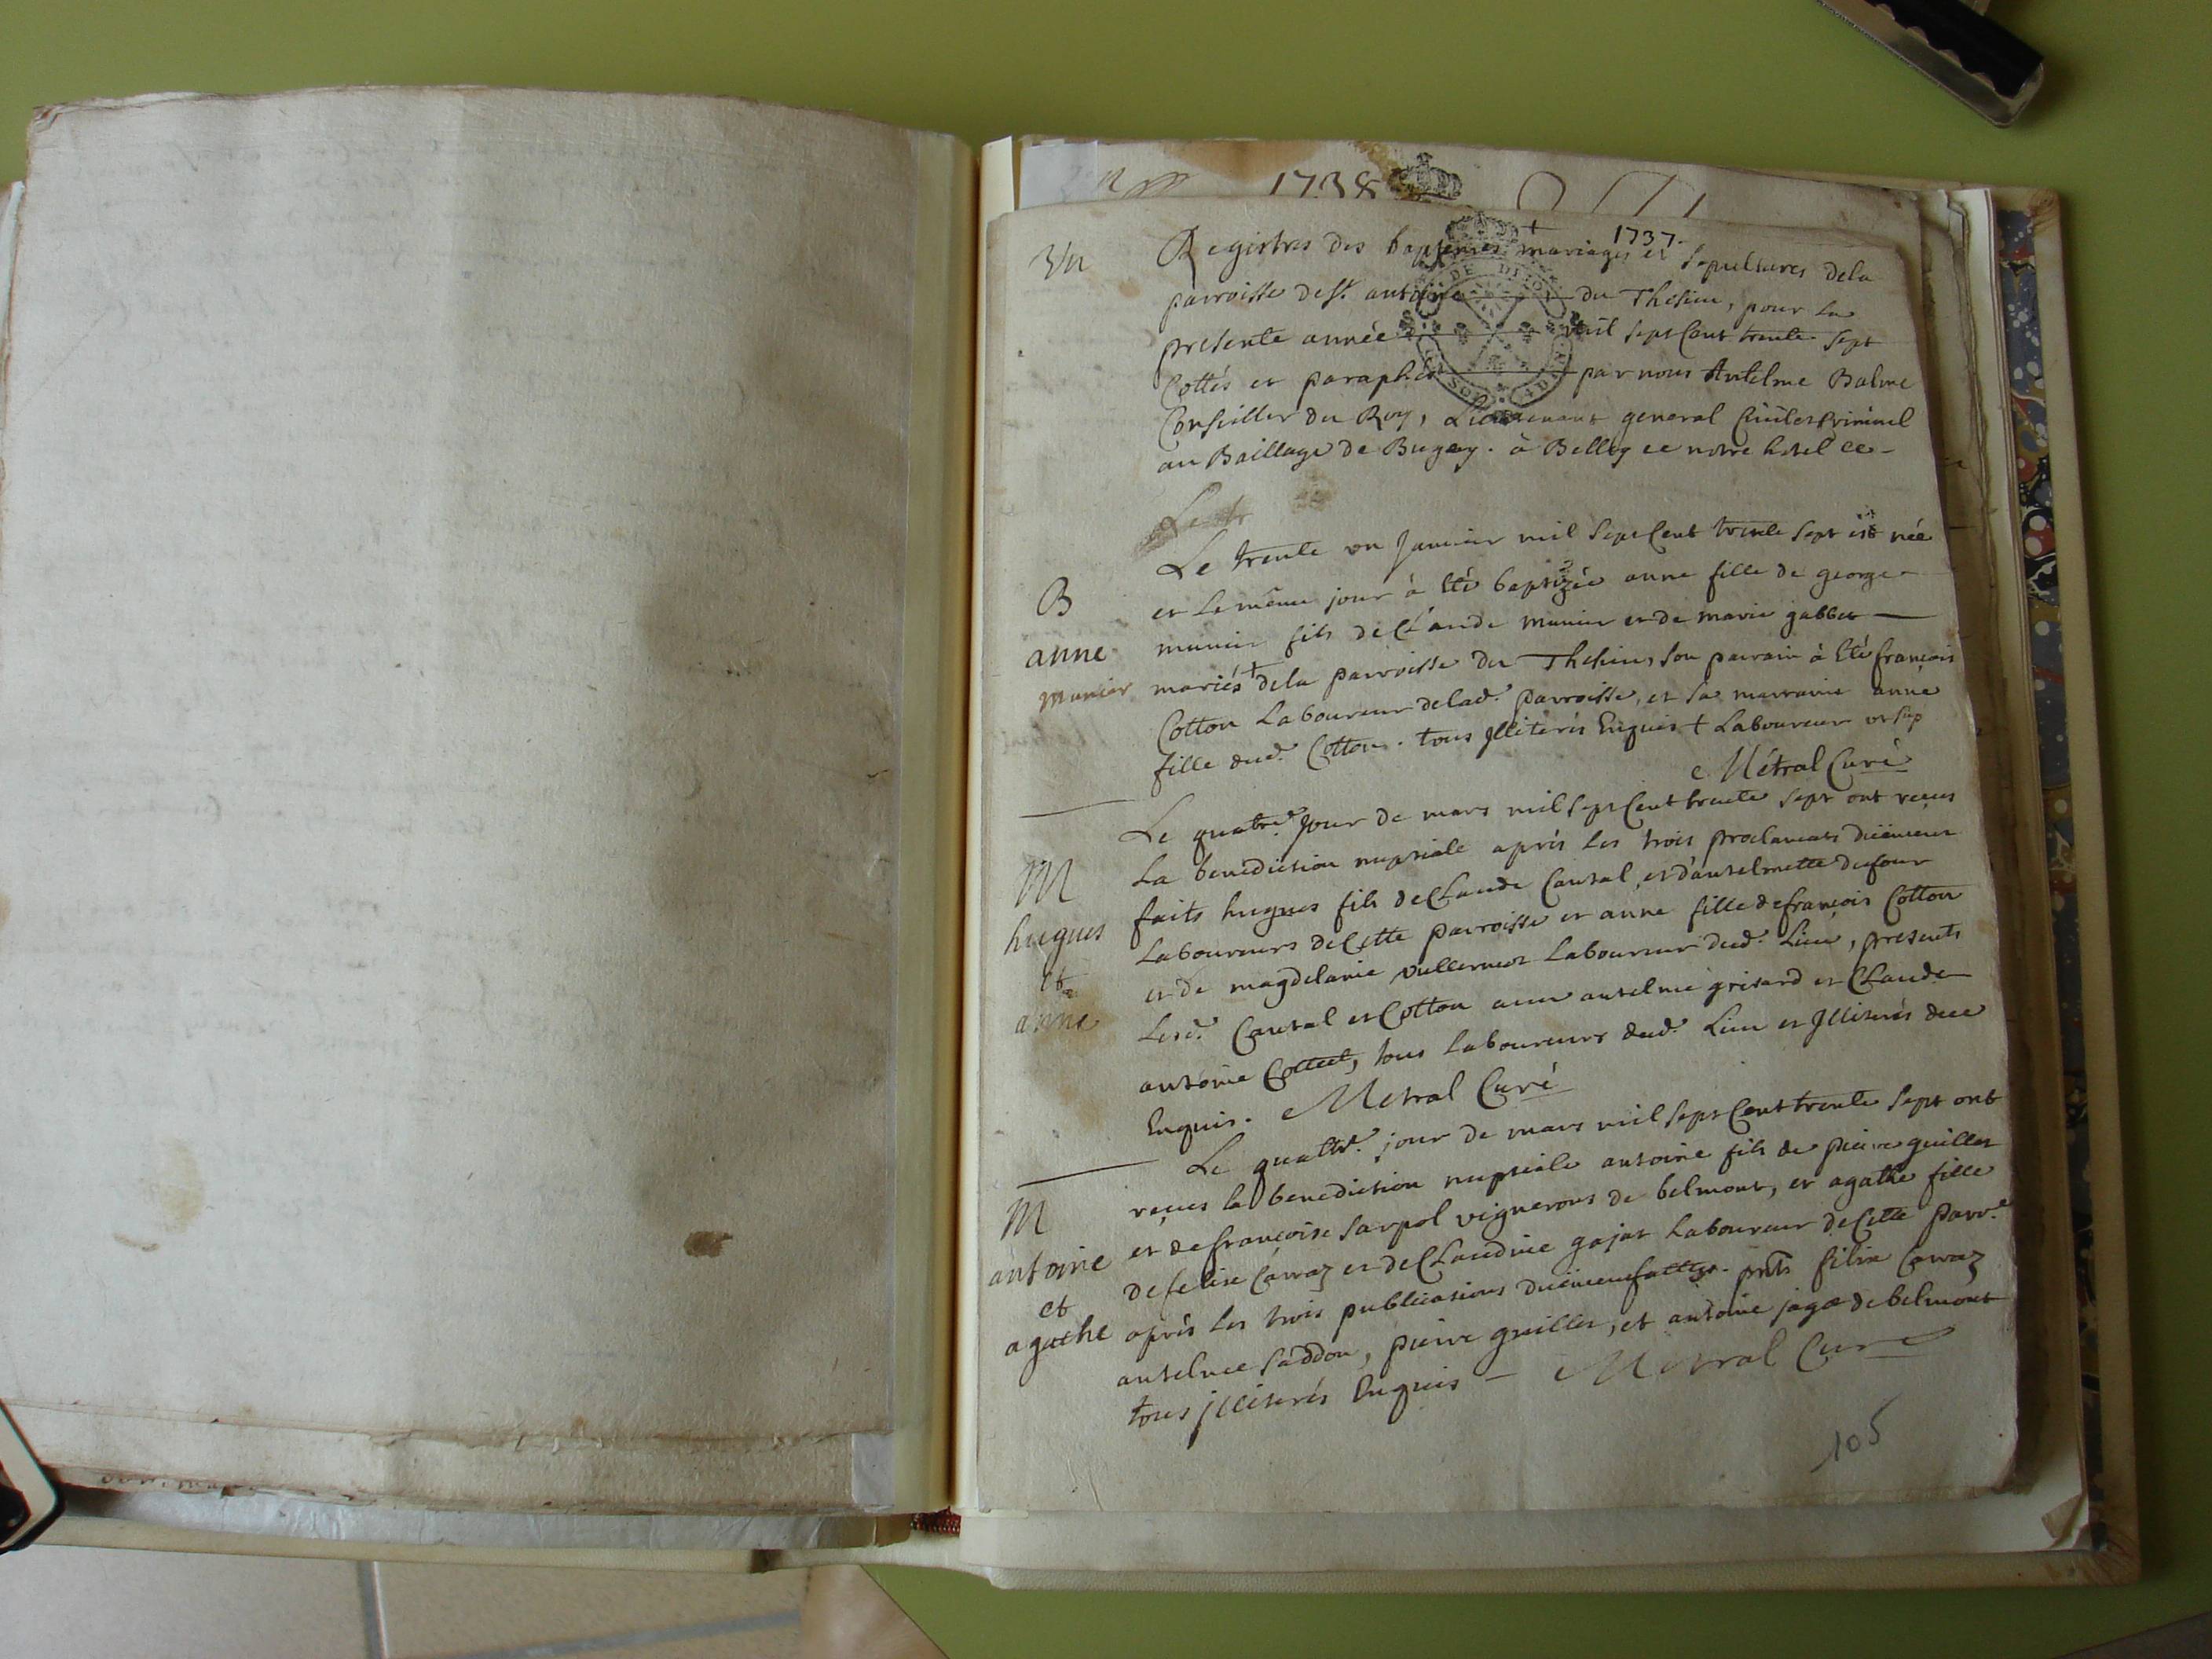 1738
1737.
Un
Registres des baptemes mariages et sepultures dela
parroisse de st. antoine du Thesieu, pour la
presente année mil sept Cent trente sept
Cottés et paraphés par nous Antelme Balme
Conseiller du Roy, Lieutenant general Civil et Criminel
au Baillage de Bugey. à Belley ce notre hotel ce
Le tr
Le trente un Janvier mil sept Cent trente sept est née
et le même jour à été baptizée anne fille de george
B
anne
munier
munier fils de Claude munier et de marie gabbet
mariés + dela parroisse du Thesieu, son parrain à été françois
Cotton Laboureur de lad. parroisse, et sa marraine anne
fille dud. Cotton. tous Illiterés Enquis + Laboureur ut sup
Métral Curé
Le quatre. Jour de mars mil sept Cent trente sept ont reçus
La benediction nuptiale après les trois proclamats düement
M
hugues
et
anne
faits hugues fils de Claude Cautal, et d'antelmette dufour
Laboureurs de Cette parroisse et anne fille de françois Cotton
et de magdelaine vullermoz Laboureur dud. Lieu, presents
Lesd. Cautal et Cotton avec antelme grisard et Claude
antoine Cottet, tous laboureurs dud. Lieu et Illiterés de ce
Enquis. Metral Curé
Le quattre. jour de mars mil sept Cent trente sept ont
reçues la benediction nuptiale antoine fils de pierre guillet
M
antoine
et
agathe
et de françoise sarpol vignerons de belmont, et agathe fille
de felix Carraz et de Claudine gajat Laboureur de Cette parr.e
après les trois publications düement faittes. pnts felix Carraz
antelme saddou, pierre guillet, et antoine jago de belmont
tous illiterés Enquis - Metral Curé
105